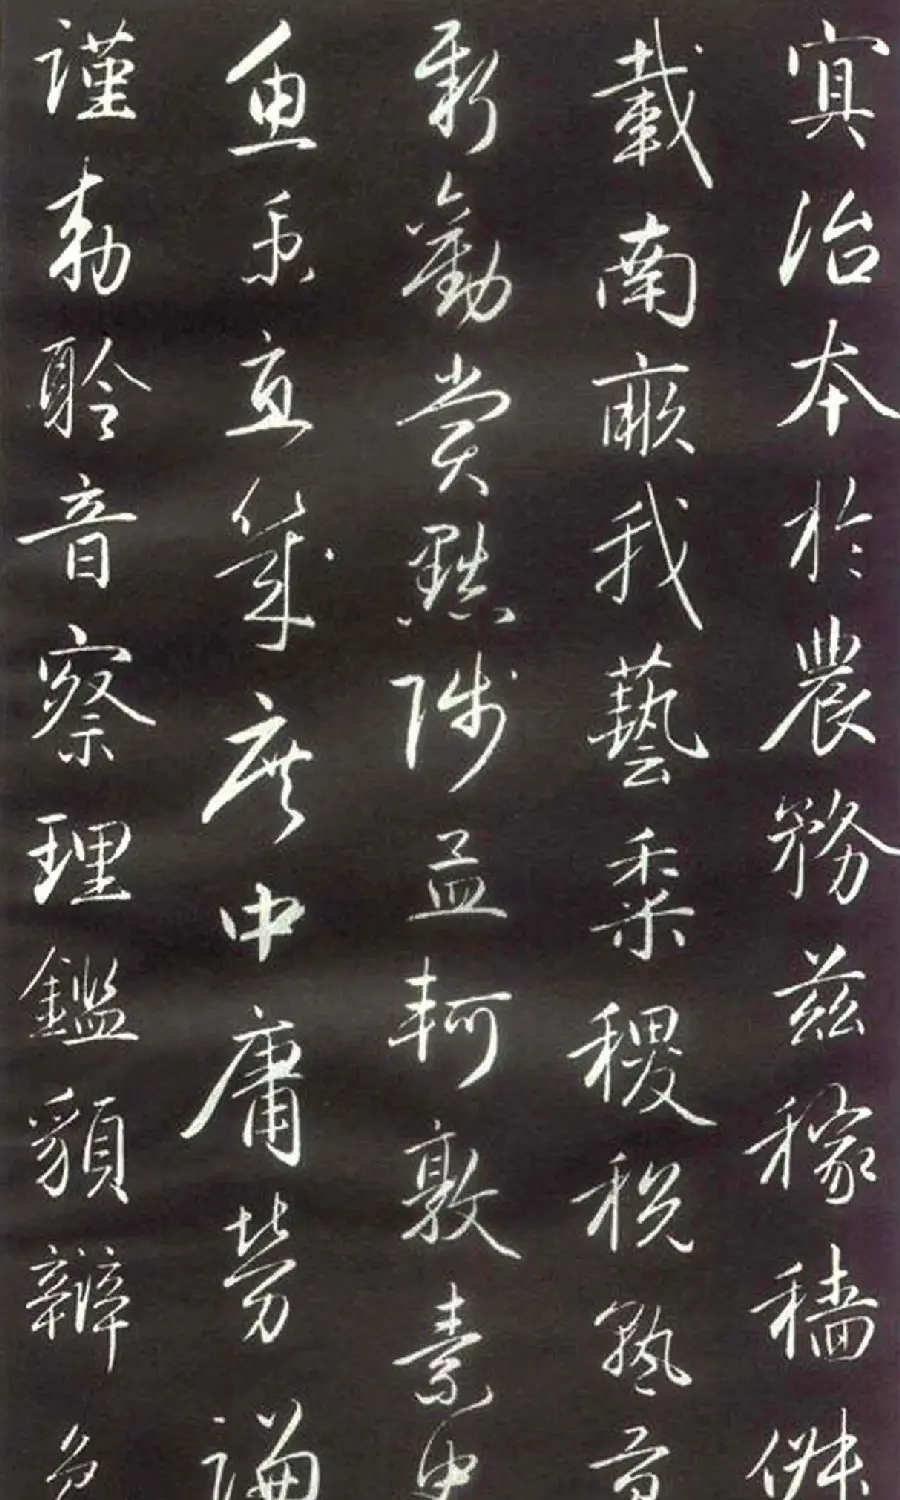 寘治本於農務茲稼穡俶
載南畝我藝黍稷稅熟貢
新勸賞黜陟孟軻敦素史
魚秉直幾庶中庸勞謙
謹勅聆音察理鑑貌辯色